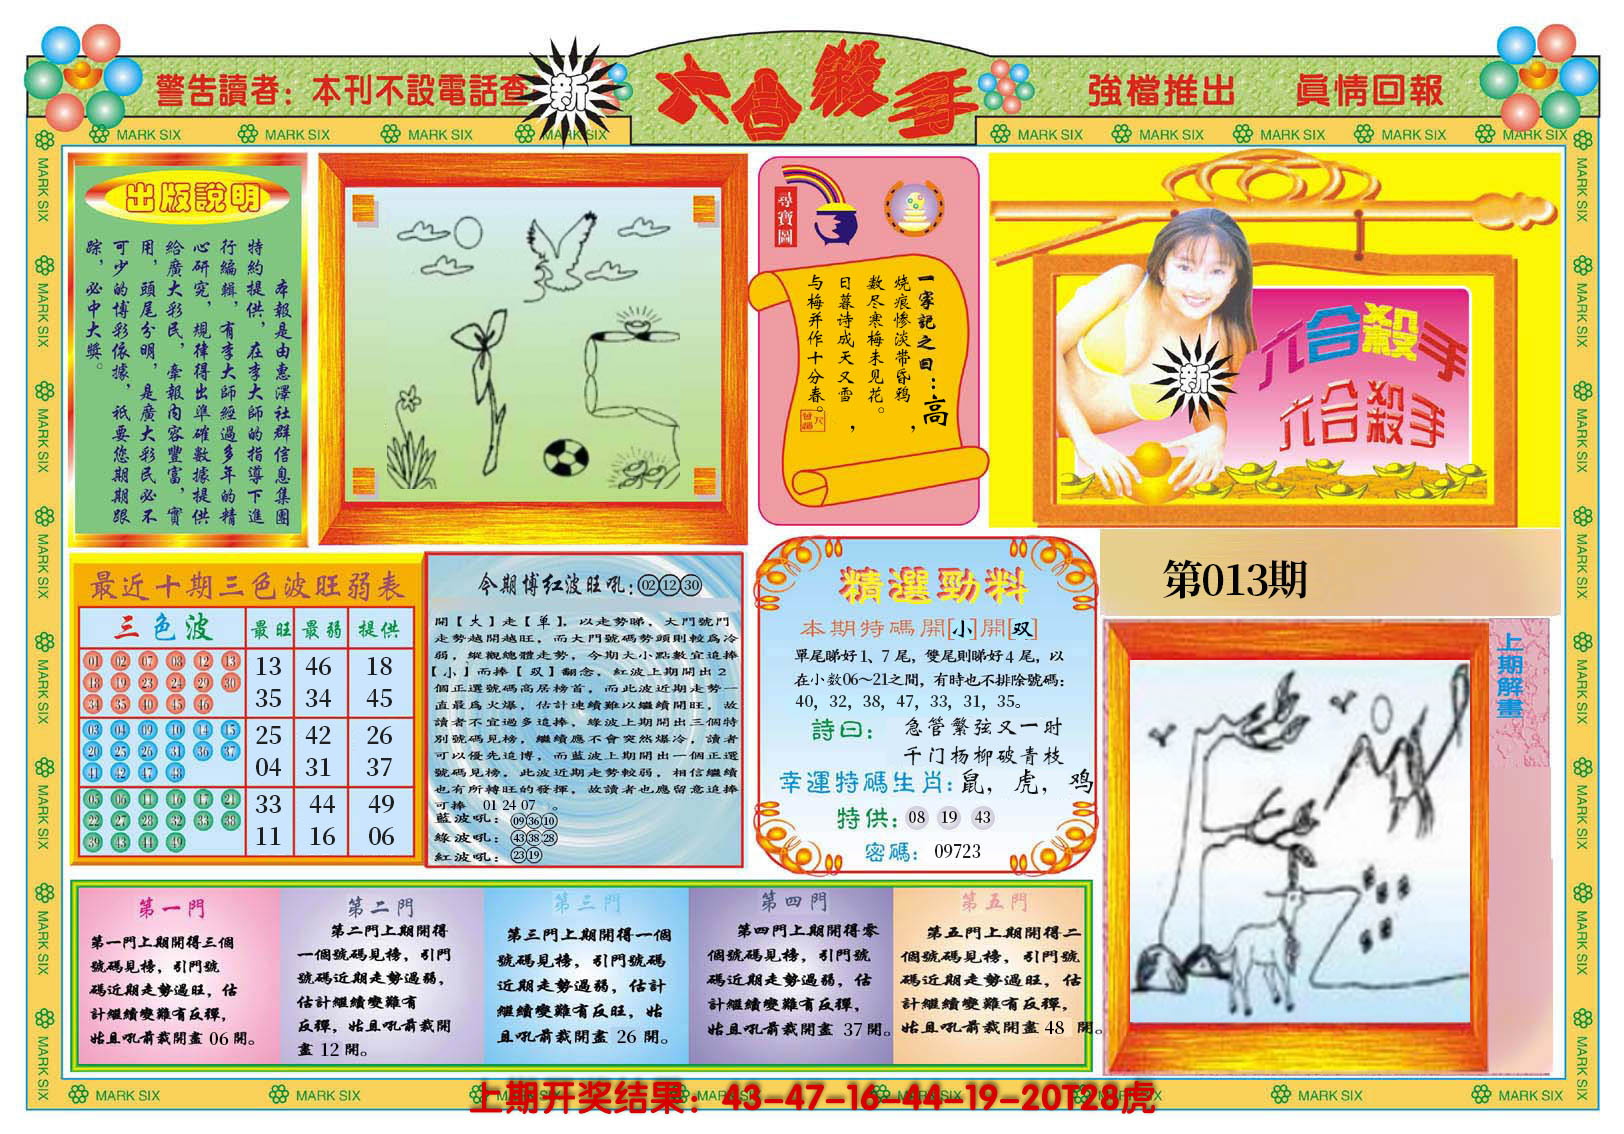 警告讀者：本刊不設電話查
新
六合殺手
強檔推出 眞情回報
MARK SIX MARK SIX MARK SIX MARK SIX MARK SIX MARK SIX MARK SIX MARK SIX MARK SIX
出版說明
本報是由惠澤社群信息集團
特約提供，在李大師的指導下進
行編輯，有李大師經過多年的精
心研究，規律得出準確數據提供
給廣大彩民，牽報內容豐富，實
用，頭尾分明，是廣大彩民必不
可少的博彩依據，祇要您期期跟
踪，必中大獎。
尋寶圖
一家記之曰：高
烧痕惨淡带昏鸦，
数尽寒梅未见花。
日暮诗成天又雪，
与梅并作十分春。
六合殺手
新
六合殺手
第013期
最近十期三色波旺弱表
三色波 最旺 最弱 提供
01 02 07 08 12 13
18 19 23 24 29 30
34 35 40 45 46
13 46 18
35 34 45
03 04 09 10 14 15
20 25 26 31 36 37
41 42 47 48
25 42 26
04 31 37
05 06 11 16 17 21
22 27 28 32 33 38
39 43 44 49
33 44 49
11 16 06
今期博红波旺吼:02 12 30
開【大】走【单】，以走勢睇，大門號門
走勢越開越旺，而大門號碼勢頭則較爲冷
弱，縱觀總體走勢，今期大小點數宜追捧
【小】而捧【双】翻念，紅波上期開出2
個正選號碼高居榜首，而此波近期走勢一
直最爲火爆，估計連續難以繼續開旺，故
讀者不宜過多追捧，綠波上期開出三個特
別號碼見榜，繼續應不會突然爆冷，讀者
可以優先追博，而藍波上期開出一個正選
號碼見榜，此波近期走勢較弱，相信繼續
也有所轉旺的發揮，故讀者也應留意追捧
可捧 01 24 07 。
藍波吼：09 36 10
綠波吼：43 38 28
紅波吼：23 19
精選勁料
本期特碼開[小]開[双]
單尾睇好1、7尾，雙尾則睇好4尾，以
在小数06～21之間，有時也不排除號碼：
40，32，38，47，33，31，35。
詩曰： 急管繁弦又一时
千门杨柳破青枝
幸運特碼生肖：鼠，虎，鸡
特供：08 19 43
密碼：09723
上期解畫
第一門
第一門上期開得三個
號碼見榜，引門號
碼近期走勢過旺，估
計繼續變難有反彈，
姑且吼前裁開盡 06 開。
第二門
第二門上期開得
一個號碼見榜，引門
號碼近期走勢過弱，
估計繼續變難有
反彈，姑且吼前裁開
盡 12 開。
第三門
第三門上期開得一個
號碼見榜，引門號碼
近期走勢過弱，估計
繼續變難有反旺，姑
且吼前裁開盡 26 開。
第四門
第四門上期開得零
個號碼見榜，引門號
碼近期走勢過弱，估
計繼續變難有反彈，
姑且吼前裁開盡 37 開。
第五門
第五門上期開得二
個號碼見榜，引門號
碼近期走勢過旺，估
計繼續變難有反彈，
姑且吼前裁開盡 48 開。
上期开奖结果：43-47-16-44-19-20T28虎